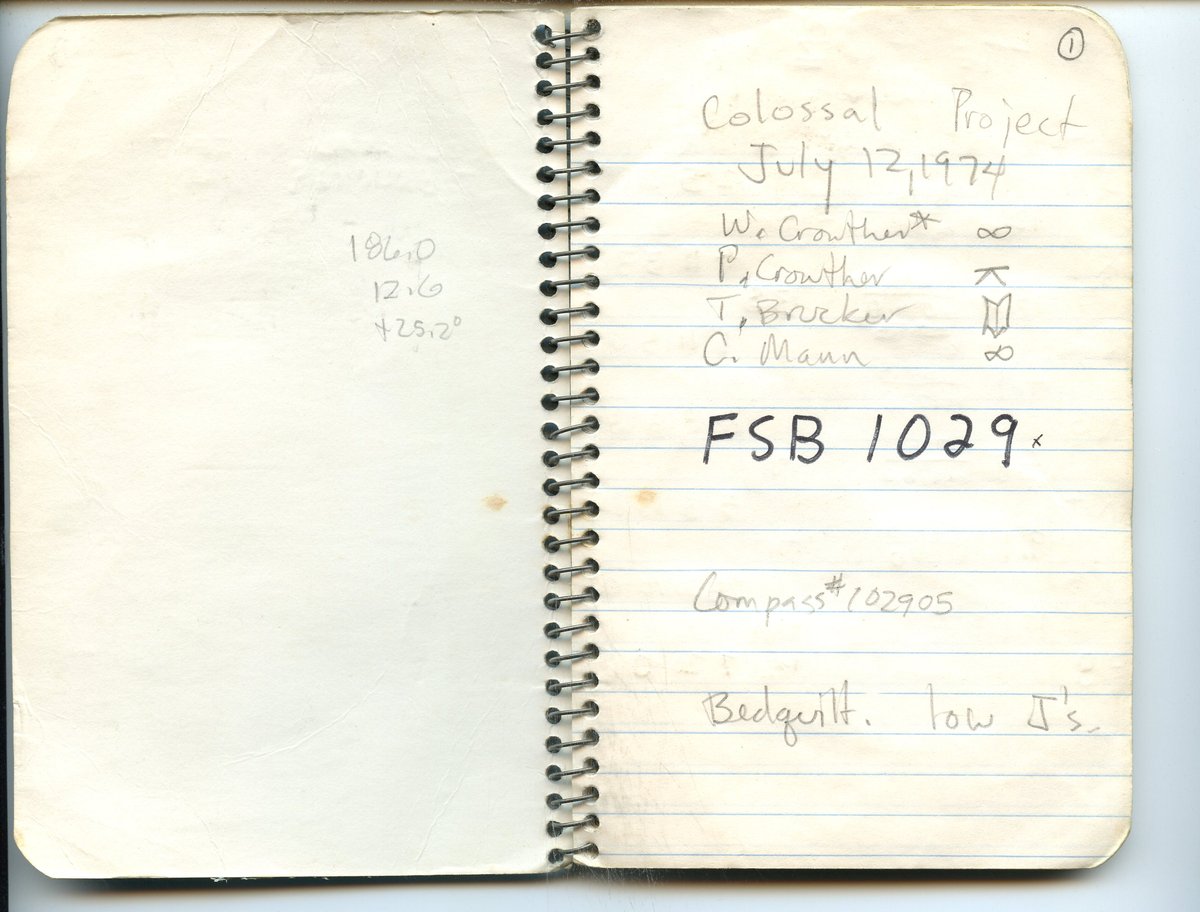 186.0
12.6
+25.2°
①
Colossal Project
July 12, 1974
W. Crowther* ∞
P. Crowther
T. Brucker
C. Mann ∞
FSB 1029.x
Compass #102905
Bedquilt. low J's.